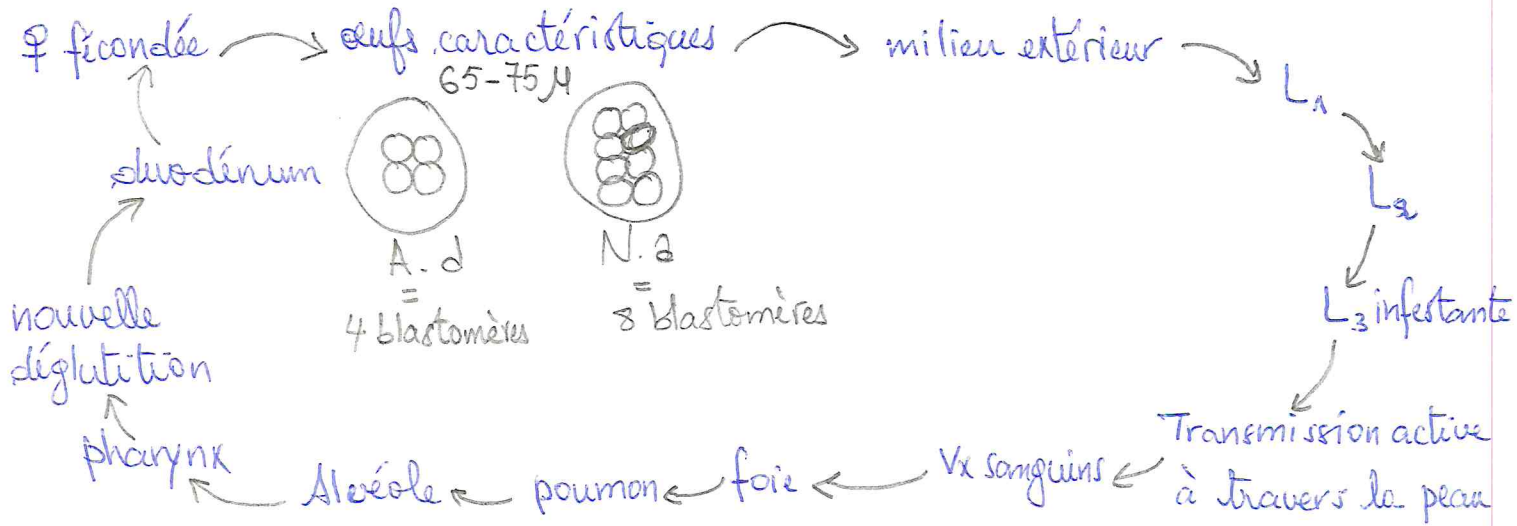 ♀ fécondée
œufs caractéristiques
65-75 µ
milieu extérieur
L1
L2
L3 infestante
Transmission active
à travers la peau
Vx sanguins
foie
poumon
Alvéole
pharynx
nouvelle
déglutition
duodénum
A. d
=
4 blastomères
N. a
=
8 blastomères